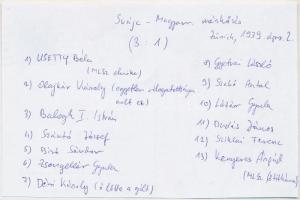 Svájc - Magyaror. mérkőzés
(3:1)
Zürich, 1939. ápr. 2.
1) USETTY Béla
(MLSz elnöke)
2) Olajkár Károly (egyetlen válogatottságuk
volt ez)
3) Balogh I. István
4) Szántó József
5) Bíró Sándor
6) Zsengellér Gyula
7) Déri Károly (ő lőtte a gólt)
8) Gyetvai László
9) Szabó Antal
10) Lázár Gyula
11) Dudás János
12) Sziklai Ferenc
13) Kenyeres Árpád
(MLSz főtitkára)